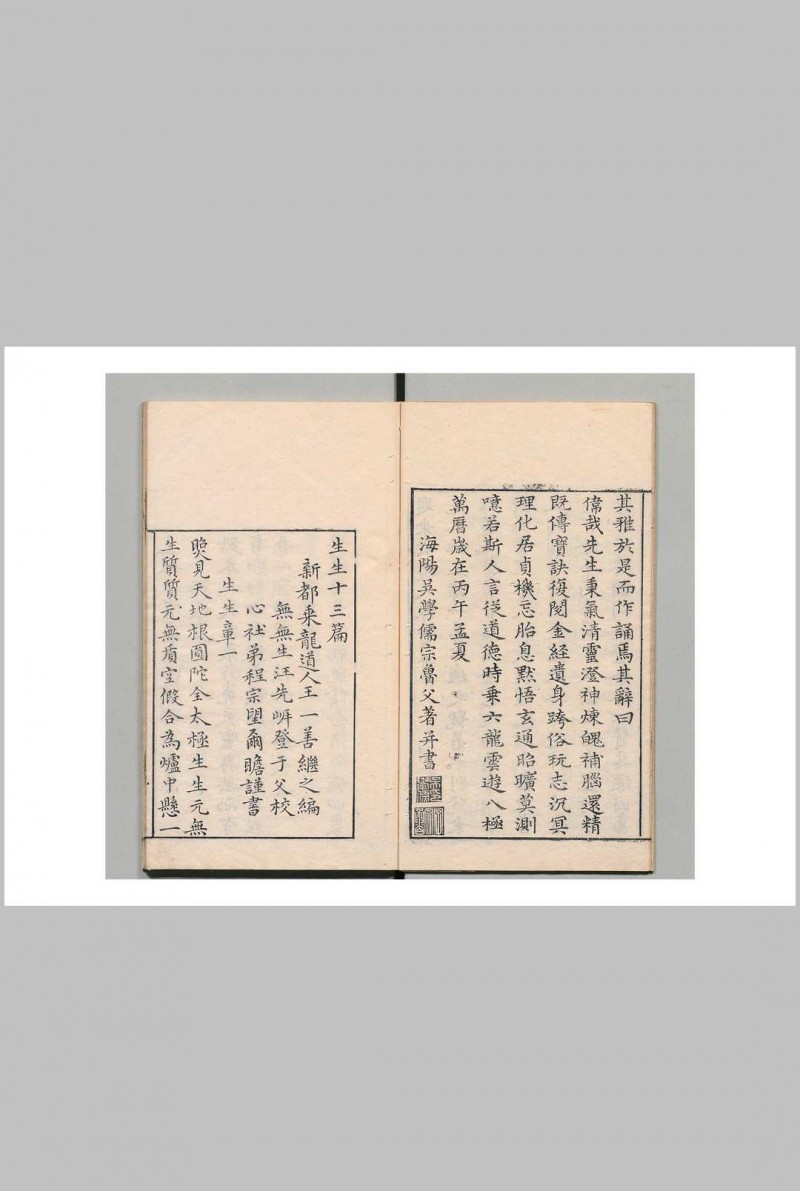 其雅於是而作誦焉其辭曰
偉哉先生秉氣清靈澄神煉魄補腦還精
既傳寶訣復閱金經遺身跨俗玩志沉冥
理化居貞機忘胎息默悟玄通昭曠莫測
噫若斯人言從道德時乗六龍雲遊八極
萬曆歲在丙午孟夏
海陽吳學儒宗魯父著并書
生生十三篇
新都乘龍道人王一善繼之編
無無生汪先岍登于父校
心社弟程宗望爾瞻謹書
生生章一
煚見天地根圓陀全太極生生元無
生質質元無質空假合為爐中懸一